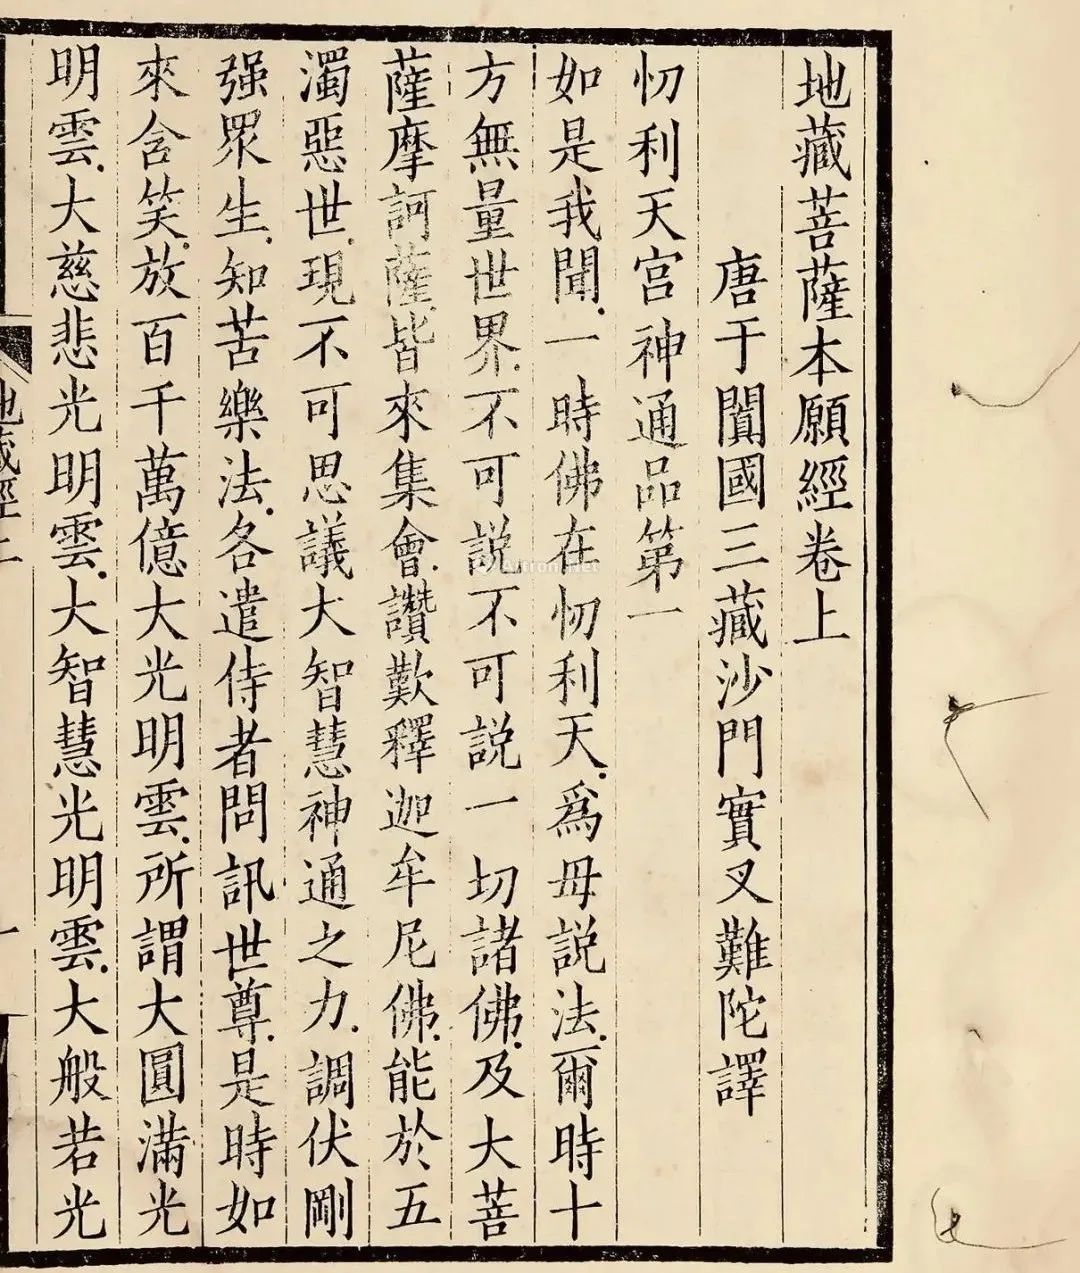 地藏菩薩本願經卷上
唐于闐國三藏沙門實叉難陀譯
忉利天宮神通品第一
如是我聞.一時佛在忉利天.爲母説法.爾時十
方無量世界.不可説不可説一切諸佛.及大菩
薩摩訶薩.皆來集會.讚歎釋迦牟尼佛.能於五
濁惡世.現不可思議大智慧神通之力.調伏剛
强眾生.知苦樂法.各遣侍者問訊世尊.是時如
來含笑.放百千萬億大光明雲.所謂大圓滿光
明雲.大慈悲光明雲.大智慧光明雲.大般若光
地藏經上
一